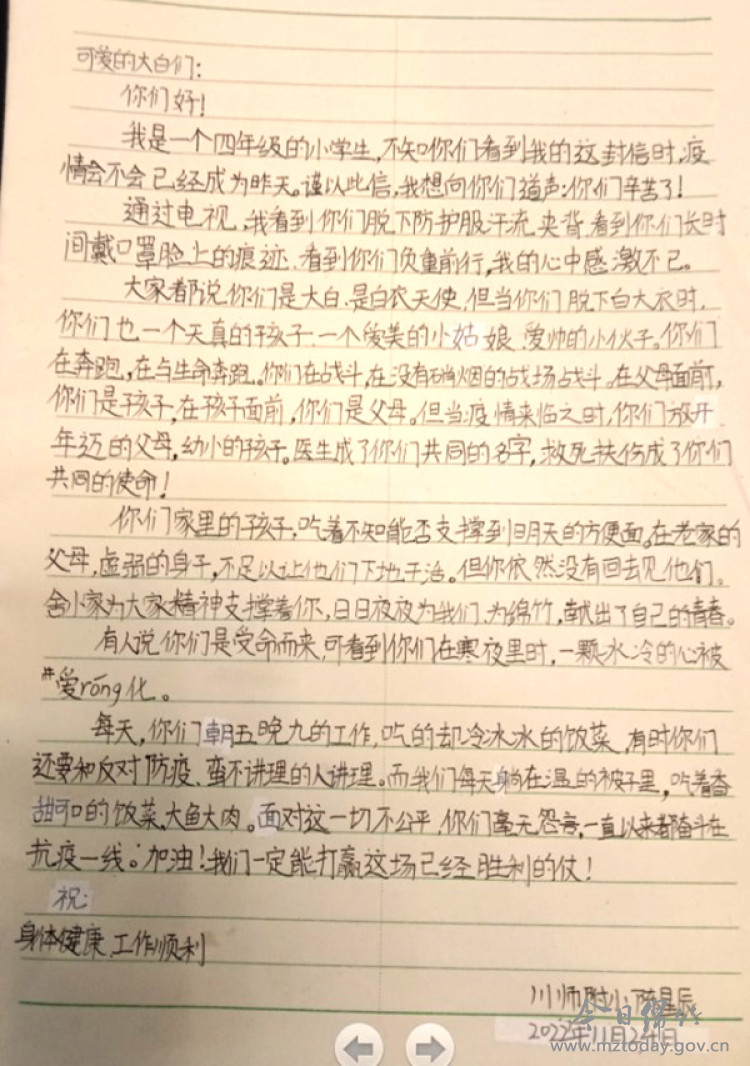 可爱的大白们：
你们好！
我是一个四年级的小学生，不知你们看到我的这封信时，疫
情会不会已经成为昨天。谨以此信，我想向你们道声：你们辛苦了！
通过电视，我看到你们脱下防护服汗流夹背，看到你们长时
间戴口罩脸上的痕迹、看到你们负重前行，我的心中感激不已。
大家都说你们是大白、是白衣天使，但当你们脱下白大衣时，
你们也一个天真的孩子、一个爱美的小姑娘、爱帅的小伙子。你们
在奔跑，在与生命奔跑。你们在战斗，在没有硝烟的战场战斗。在父母面前，
你们是孩子，在孩子面前，你们是父母。但当疫情来临之时，你们放开
年迈的父母，幼小的孩子。医生成了你们共同的名字，救死扶伤成了你们
共同的使命！
你们家里的孩子，吃着不知能否支撑到明天的方便面。在老家的
父母，虚弱的身子，不足以让他们下地干活。但你依然没有回去见他们。
舍小家为大家精神支撑着你，日日夜夜为我们、为绵竹，献出了自己的青春。
有人说你们是受命而来，可看到你们在寒夜里时，一颗冰冷的心被
爱róng化。
每天，你们朝五晚九的工作，吃的却冷冰冰的饭菜，有时你们
还要和反对防疫、蛮不讲理的人讲理。而我们每天躺在温的被子里，吃着香
甜可口的饭菜，大鱼大肉。面对这一切不公平，你们毫无怨言，一直以来都奋斗在
抗疫一线。加油！我们一定能打赢这场已经胜利的仗！
祝：
身体健康、工作顺利
川师附小 陈星辰
2022年11月24日
今日绵竹
www.mztoday.gov.cn